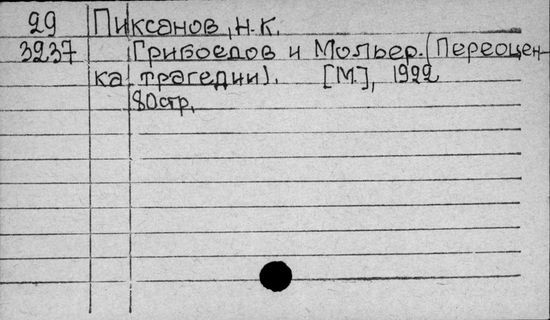 29 Пиксанов, Н.К.
3237 Грибоедов и Мольер. (Переоцен-
ка трагедии). [М.], 1922
80стр.